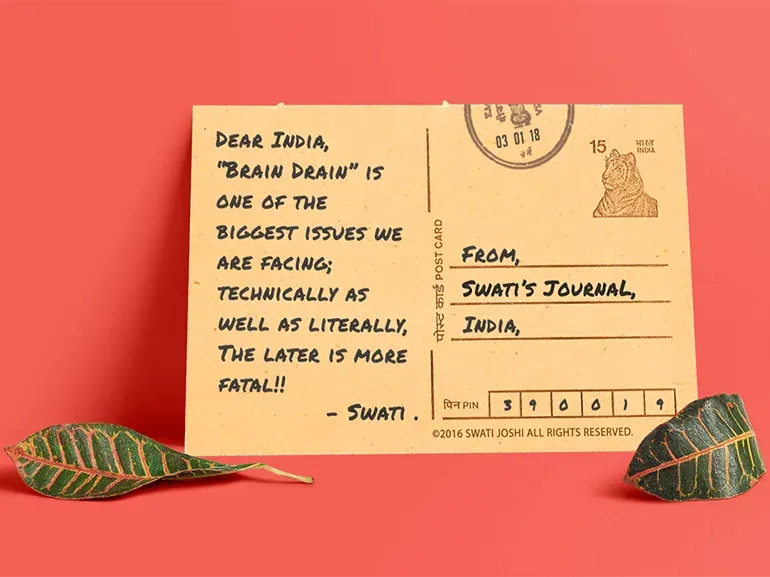 DEAR INDIA,
"BRAIN DRAIN" IS
ONE OF THE
BIGGEST ISSUES WE
ARE FACING;
TECHNICALLY AS
WELL AS LITERALLY,
THE LATER IS MORE
FATAL!!
- SWATI .
पोस्ट कार्ड POST CARD
03 01 18
15 भारत
INDIA
FROM,
SWATI'S JOURNAL,
INDIA,
पिन PIN 390019
©2016 SWATI JOSHI ALL RIGHTS RESERVED.